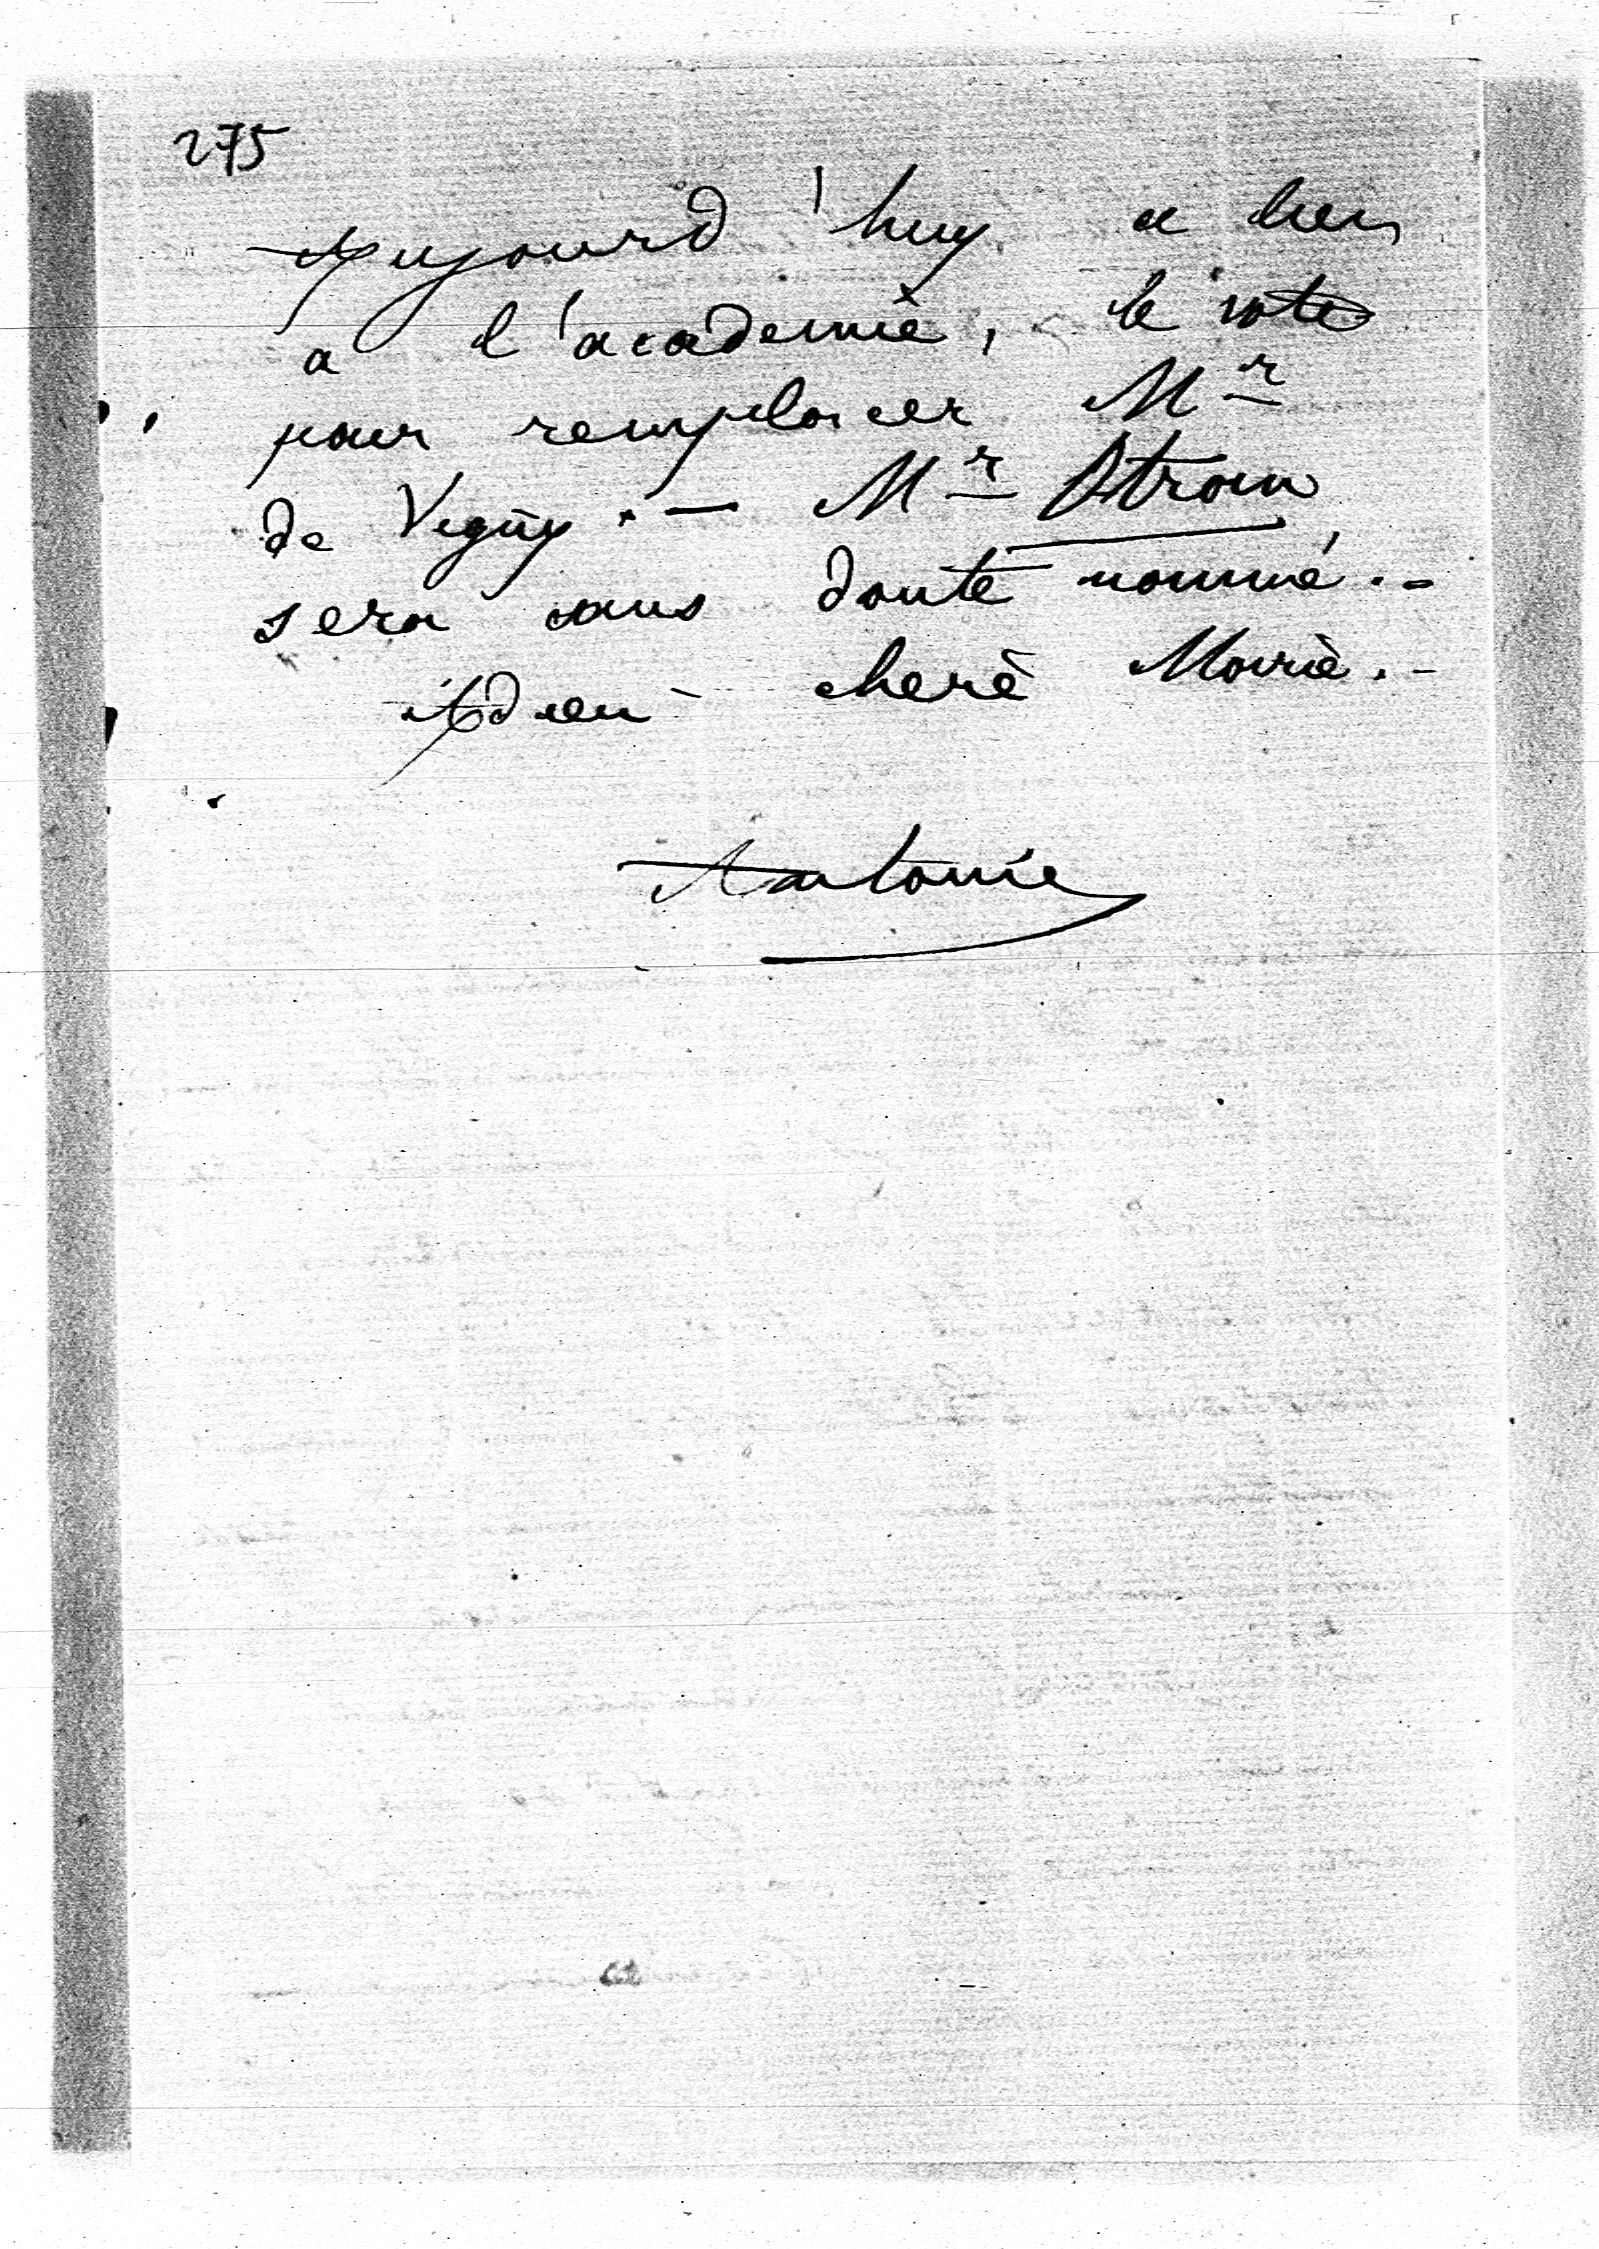 275
Aujourd'huy a lieu
a l'academie, le vote
pour remplacer Mr
de Vegny. — Mr Atran
sera sans doute nommé. -
Adieu - chere Marie. -
Antonie